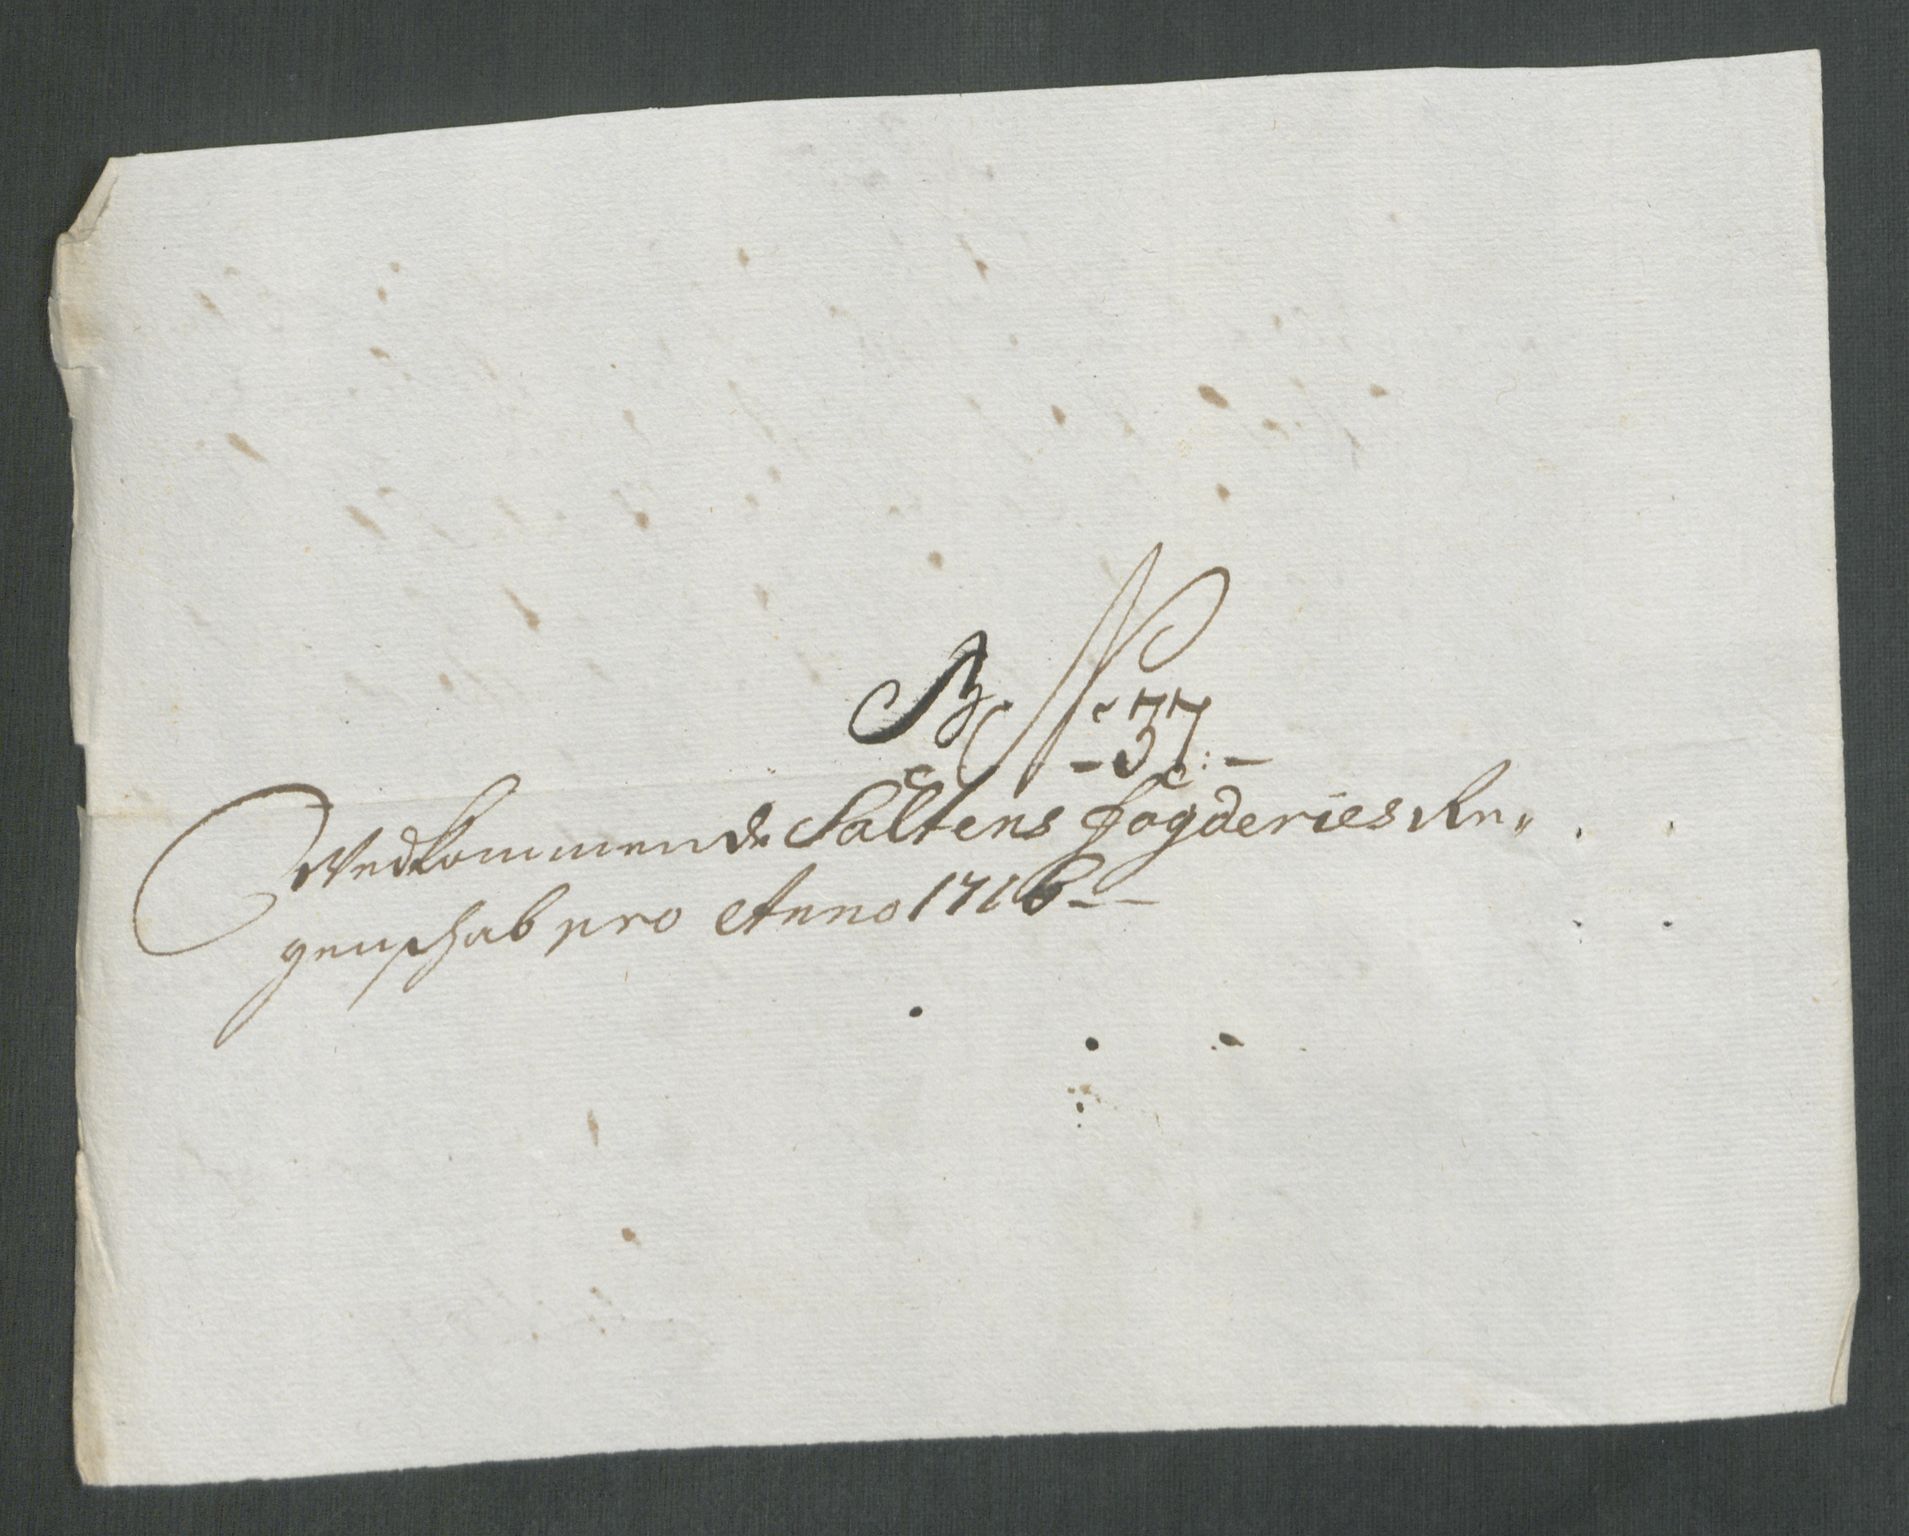 B. No 37.
Vedkommende Saltens fogderies Re„
genschab pro Anno 1716